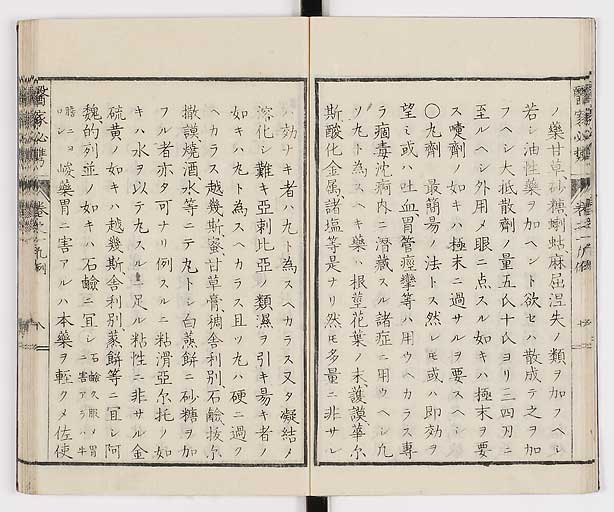 ノ藥甘草、砂糖、蝲蛄、麻屈涅失ノ類ヲ加フヘシ
若シ油性藥ヲ加ヘント欲セハ散成テ之ヲ加
フヘシ大抵散劑ノ量五氏十氏ヨリ三四刃ニ
至ルヘシ外用メ眼ニ点スル如キハ極末ヲ要
ス嚏劑ノ如キハ極末ニ過サルヲ要スヘシ
〇丸劑 最簡易ノ法トス然レモ或ハ即効ヲ
望ミ或ハ吐血胃管痙攣等ハ用ウヘカラス專
ラ痼毒沈痾内ニ潛藏スル諸症ニ用ウヘシ凢
ソ丸ト為スヘキ藥ハ根莖花葉ノ末、護謨、華尓
斯、酸化金属、諸塩等是ナリ然モ多量ニ非サレ
ハ効ナキ者ハ丸ト為スヘカラス又タ凝結ノ
溶化シ難キ亞剌比亞ノ類濕ヲ引キ易キ者ノ
如キハ丸ト為スヘカラス且ツ丸ハ硬ニ過ク
ヘカラス越幾斯、蜜、甘草膏、稠舎利別、石鹸、拔尓
撒謨、燒酒、水等ニテ丸トシ白蒸餅ニ砂糖ヲ加
フル者亦タ可ナリ例スルニ粘滑亞尓托ノ如
キハ水ヲ以テ丸スルニ足ル粘性ニ非サル金
硫黄ノ如キハ越幾斯舎利別、蒸餅等ニ宜シ阿
魏的列並ノ如キハ石鹸ニ宜シ石鹸久服ノ胃ニ害アラハ牛膽ニヨロシ
峻藥胃ニ害アルハ本藥ヲ輕クメ佐使
醫家必携 卷之一 丸劑 八